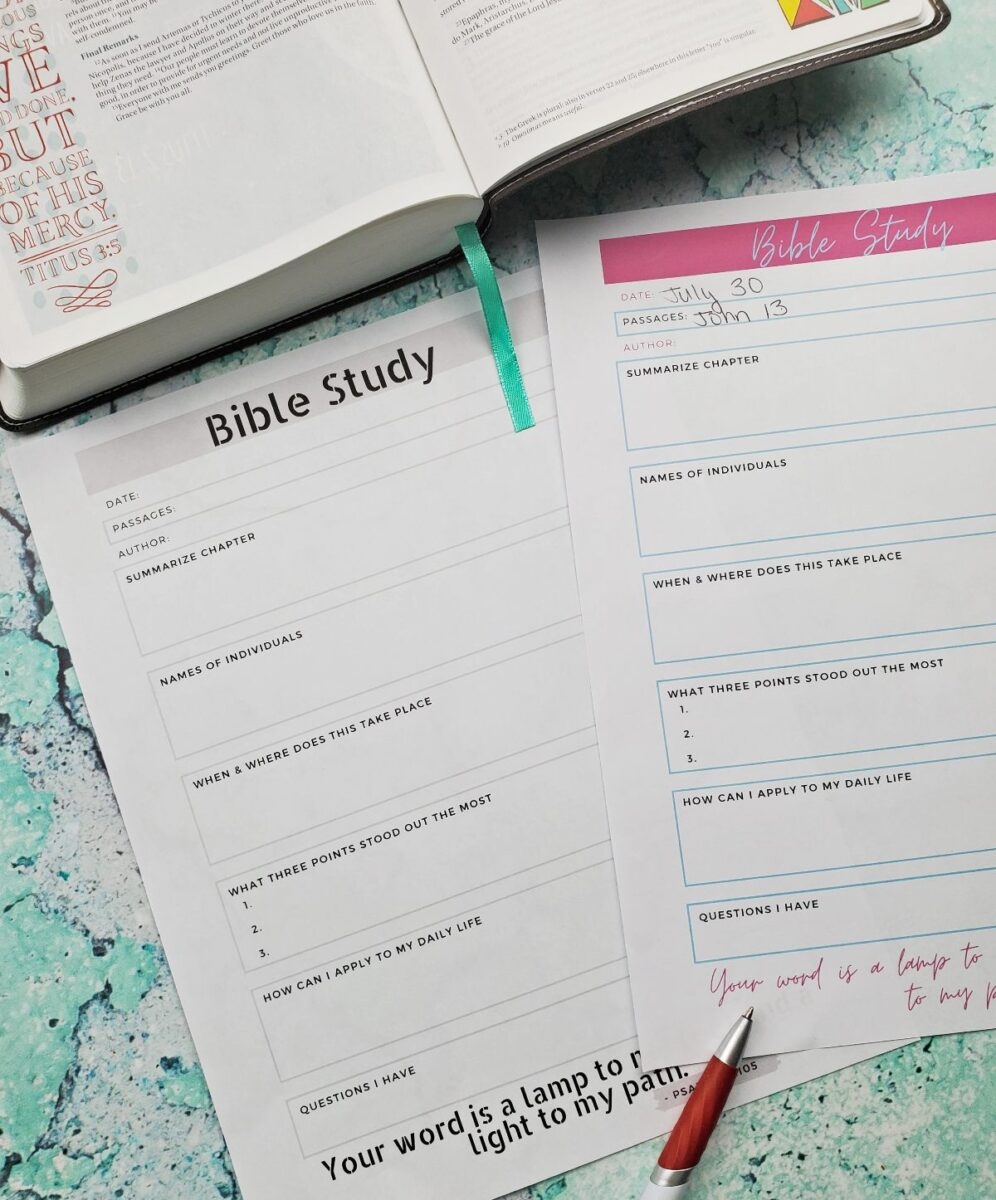 OUS
NGS
VE
D DONE,
BUT
BECAUSE
OF HIS
MERCY.
TITUS 3:5
person can
with them, and
self-condemned.
Final Remarks
As soon as I send Artemas or Tychicus to
Nicopolis, because I have decided to winter there.
help Zenas the lawyer and Apollos on their way
thing they need. Our people must learn to devote themselves
good, in order to provide for urgent needs and not live unproductive
Everyone with me sends you greetings. Greet those who love us in the faith.
Grace be with you all.
Epaphras, my
do Mark, Aristarchus,
The grace of the Lord
The Greek is plural; also in verses 22 and 25; elsewhere in this letter "you" is singular.
Onesimus means useful.
Bible Study
DATE:
PASSAGES:
AUTHOR:
SUMMARIZE CHAPTER
NAMES OF INDIVIDUALS
WHEN & WHERE DOES THIS TAKE PLACE
WHAT THREE POINTS STOOD OUT THE MOST
1.
2.
3.
HOW CAN I APPLY TO MY DAILY LIFE
QUESTIONS I HAVE
Your word is a lamp to
light to my path.
Bible Study
DATE: July 30
PASSAGES: John 13
AUTHOR:
SUMMARIZE CHAPTER
NAMES OF INDIVIDUALS
WHEN & WHERE DOES THIS TAKE PLACE
WHAT THREE POINTS STOOD OUT THE MOST
1.
2.
3.
HOW CAN I APPLY TO MY DAILY LIFE
QUESTIONS I HAVE
Your word is a lamp to
to my p